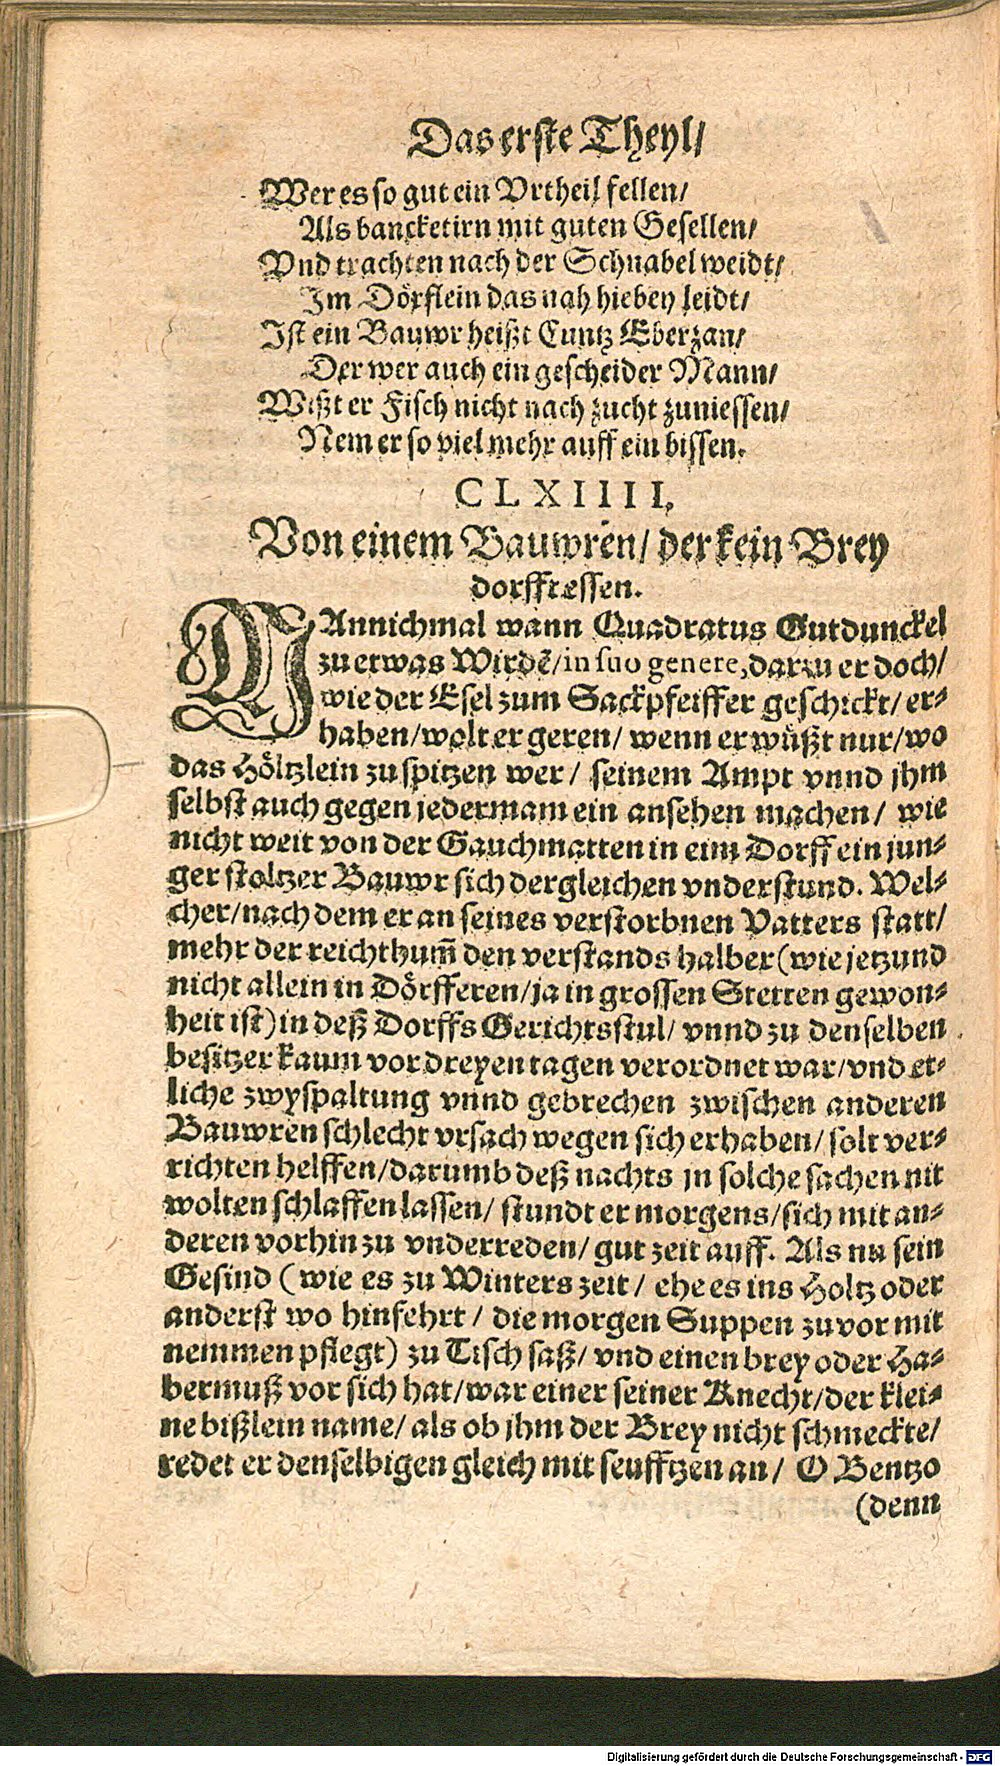 Das erste Theyl/
Wer es so gut ein Vrtheil fellen/
Als bancketirn mit guten Gesellen/
Vnd trachten nach der Schnabelweidt/
Im Dörflein das nah hiebey leidt/
Ist ein Bauwr heißt Cuntz Eberzan/
Der wer auch ein gescheider Mann/
Wißt er Fisch nicht nach zucht zuniessen/
Nem er so viel mehr auff ein bissen.
CLXIIII.
Von einem Bauwren/ der kein Brey
dorfft essen.
MAnnichmal wann Quadratus Gutdunckel
zu etwas Wirdē/ in suo genere, darzu er doch/
wie der Esel zum Sackpfeiffer geschickt/ er-
haben/ wolt er geren/ wenn er wüßt nur/ wo
das Höltzlein zu spitzen wer/ seinem Ampt vnnd jhm
selbst auch gegen jedermam ein ansehen machen/ wie
nicht weit von der Gauchmatten in eim Dorff ein jun-
ger stoltzer Bauwr sich dergleichen vnderstund. Wel-
cher/ nach dem er an seines verstorbnen Vatters statt/
mehr der reichthum̄ den verstands halber (wie jetzund
nicht allein in Dörfferen/ ja in grossen Stetten gewon-
heit ist) in deß Dorffs Gerichtsstul/ vnnd zu denselben
besitzer kaum vor dreyen tagen verordnet war/ vnd et-
liche zwyspaltung vnnd gebrechen zwischen anderen
Bauwren schlecht vrsach wegen sich erhaben/ solt ver-
richten helffen/ darumb deß nachts jn solche sachen nit
wolten schlaffen lassen/ stundt er morgens/ sich mit an-
deren vorhin zu vnderreden/ gut zeit auff. Als nu sein
Gesind (wie es zu Winters zeit/ ehe es ins Holtz oder
anderst wo hinfehrt/ die morgen Suppen zuvor mit
nemmen pflegt) zu Tisch saß/ vnd einen brey oder Ha-
bermuß vor sich hat/ war einer seiner Knecht/ der klei-
ne bißlein name/ als ob jhm der Brey nicht schmeckte/
redet er denselbigen gleich mit seufftzen an/ O Bentzo
(denn
Digitalisierung gefördert durch die Deutsche Forschungsgemeinschaft - DFG